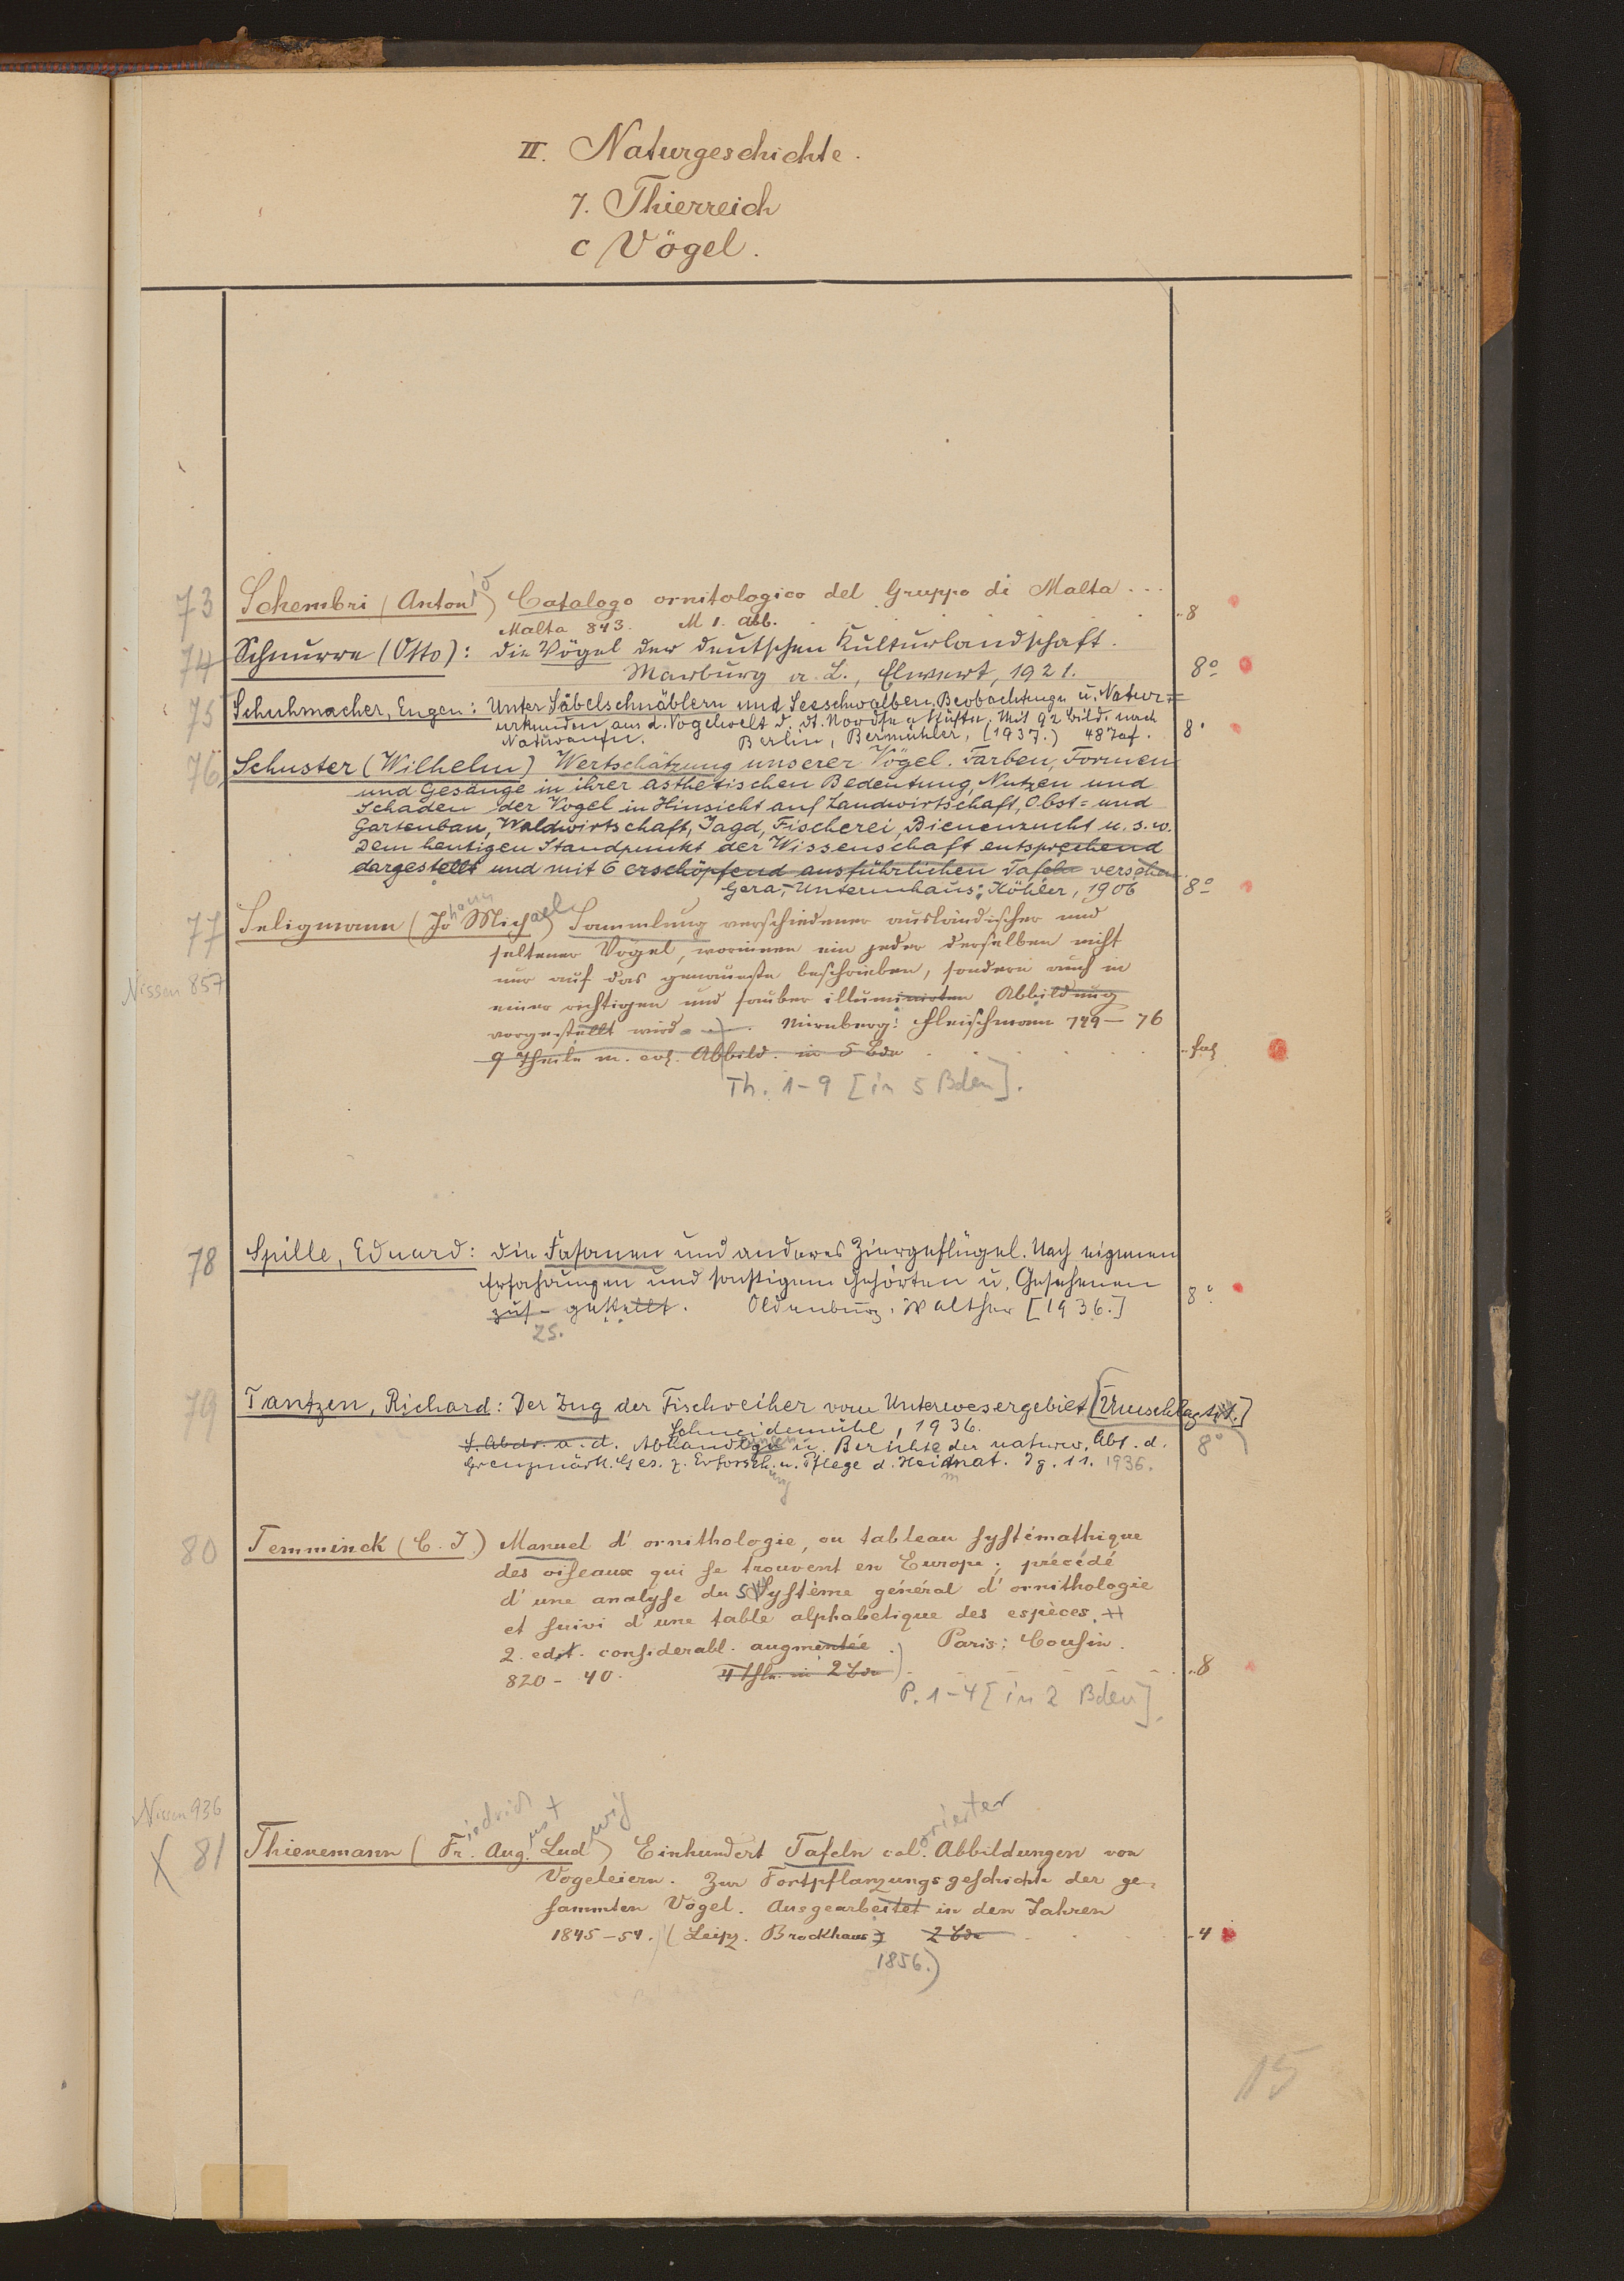 II. Naturgeschichte.
7. Thierreich
c Vögel.
73 Schembri (Antonio) Catalogo ornitologico del Gruppo di Malta ...
Malta 843. M 1. Abb. 8
74 Schnurre (Otto): Die Vögel der deutschen Kulturlandschaft.
Marburg a. L., Elwert, 1921. 8°
75 Schuhmacher, Eugen: Unter Säbelschnäblern und Seeschwalben. Beobachtungen u. Natur=
urkunden aus d. Vogelwelt d. dt. Nordseeküste. Mit 92 Bild. nach
Naturaufn. Berlin, Bermühler, (1937.) 48 Taf. 8°
76 Schuster (Wilhelm) Wertschätzung unserer Vögel. Farben, Formen
und Gesänge in ihrer ästhetischen Bedeutung, Nutzen und
Schaden der Vögel in Hinsicht auf Landwirtschaft, Obst= und
Gartenbau, Waldwirtschaft, Jagd, Fischerei, Bienenzucht u. s. w.
Dem heutigen Standpunkt der Wissenschaft entsprechend
dargestellt und mit 6 erschöpfend ausführlichen Tafeln versehen
Gera,-Untermhaus: Köhler, 1906 8°
77 Seligmann (Johann Michael) Sammlung verschiedener ausländischer und
seltener Vögel, worinnen ein jeder derselben nicht
Nissen 857 nur auf das genaueste beschrieben, sondern auch in
einer richtigen und sauber illuminirten Abbildung
vorgestellt wird. Nürnberg: Fleischmann 749–76
9 Theile m. col. Abbild. in 5 Bde fol
Th. 1-9 [in 5 Bden].
78 Spille, Eduard: Die Fasanen und anderes Ziergeflügel. Nach eigenen
Erfahrungen und sonstigem Gehörten u. Gesehenen
zus- gestellt. Oldenburg, Walther [1936.] 8°
zs.
79 Tantzen, Richard: Der Zug der Fischreiher vom Unterwesergebiet [Umschlagtit.]
Schneidemühl, 1936. 8°
S. Abdr. a. d. Abhandlungen u. Berichte der naturw. Abt. d.
Grenzmärk. Ges. z. Erforschung u. Pflege d. Heimat. Jg. 11. 1936.
80 Temminck (C. J.) Manuel d'ornithologie, ou tableau systémathique
des oiseaux qui se trouvent en Europe; précédé
d'une analyse du Système général d'ornithologie
et suivi d'une table alphabetique des espèces.
2. edit. considerabl. augmentée. Paris: Cousin.
820–40. 4 Thle. in 2 Bde 8
P. 1-4 [in 2 Bden].
Nissen 936
X 81 Thienemann (Friedrich August Ludwig) Einhundert Tafeln colorierter Abbildungen von
Vogeleiern. Zur Fortpflanzungsgeschichte der ge-
sammten Vögel. Ausgearbeitet in den Jahren
1845–54. (Leipz. Brockhaus) 2 Bde 4
1856.)
15